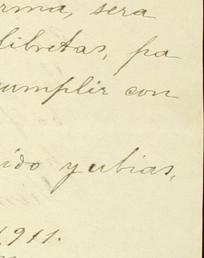 rma, sera
libretas, pa
cumplir con
ido y ubias,
1911.